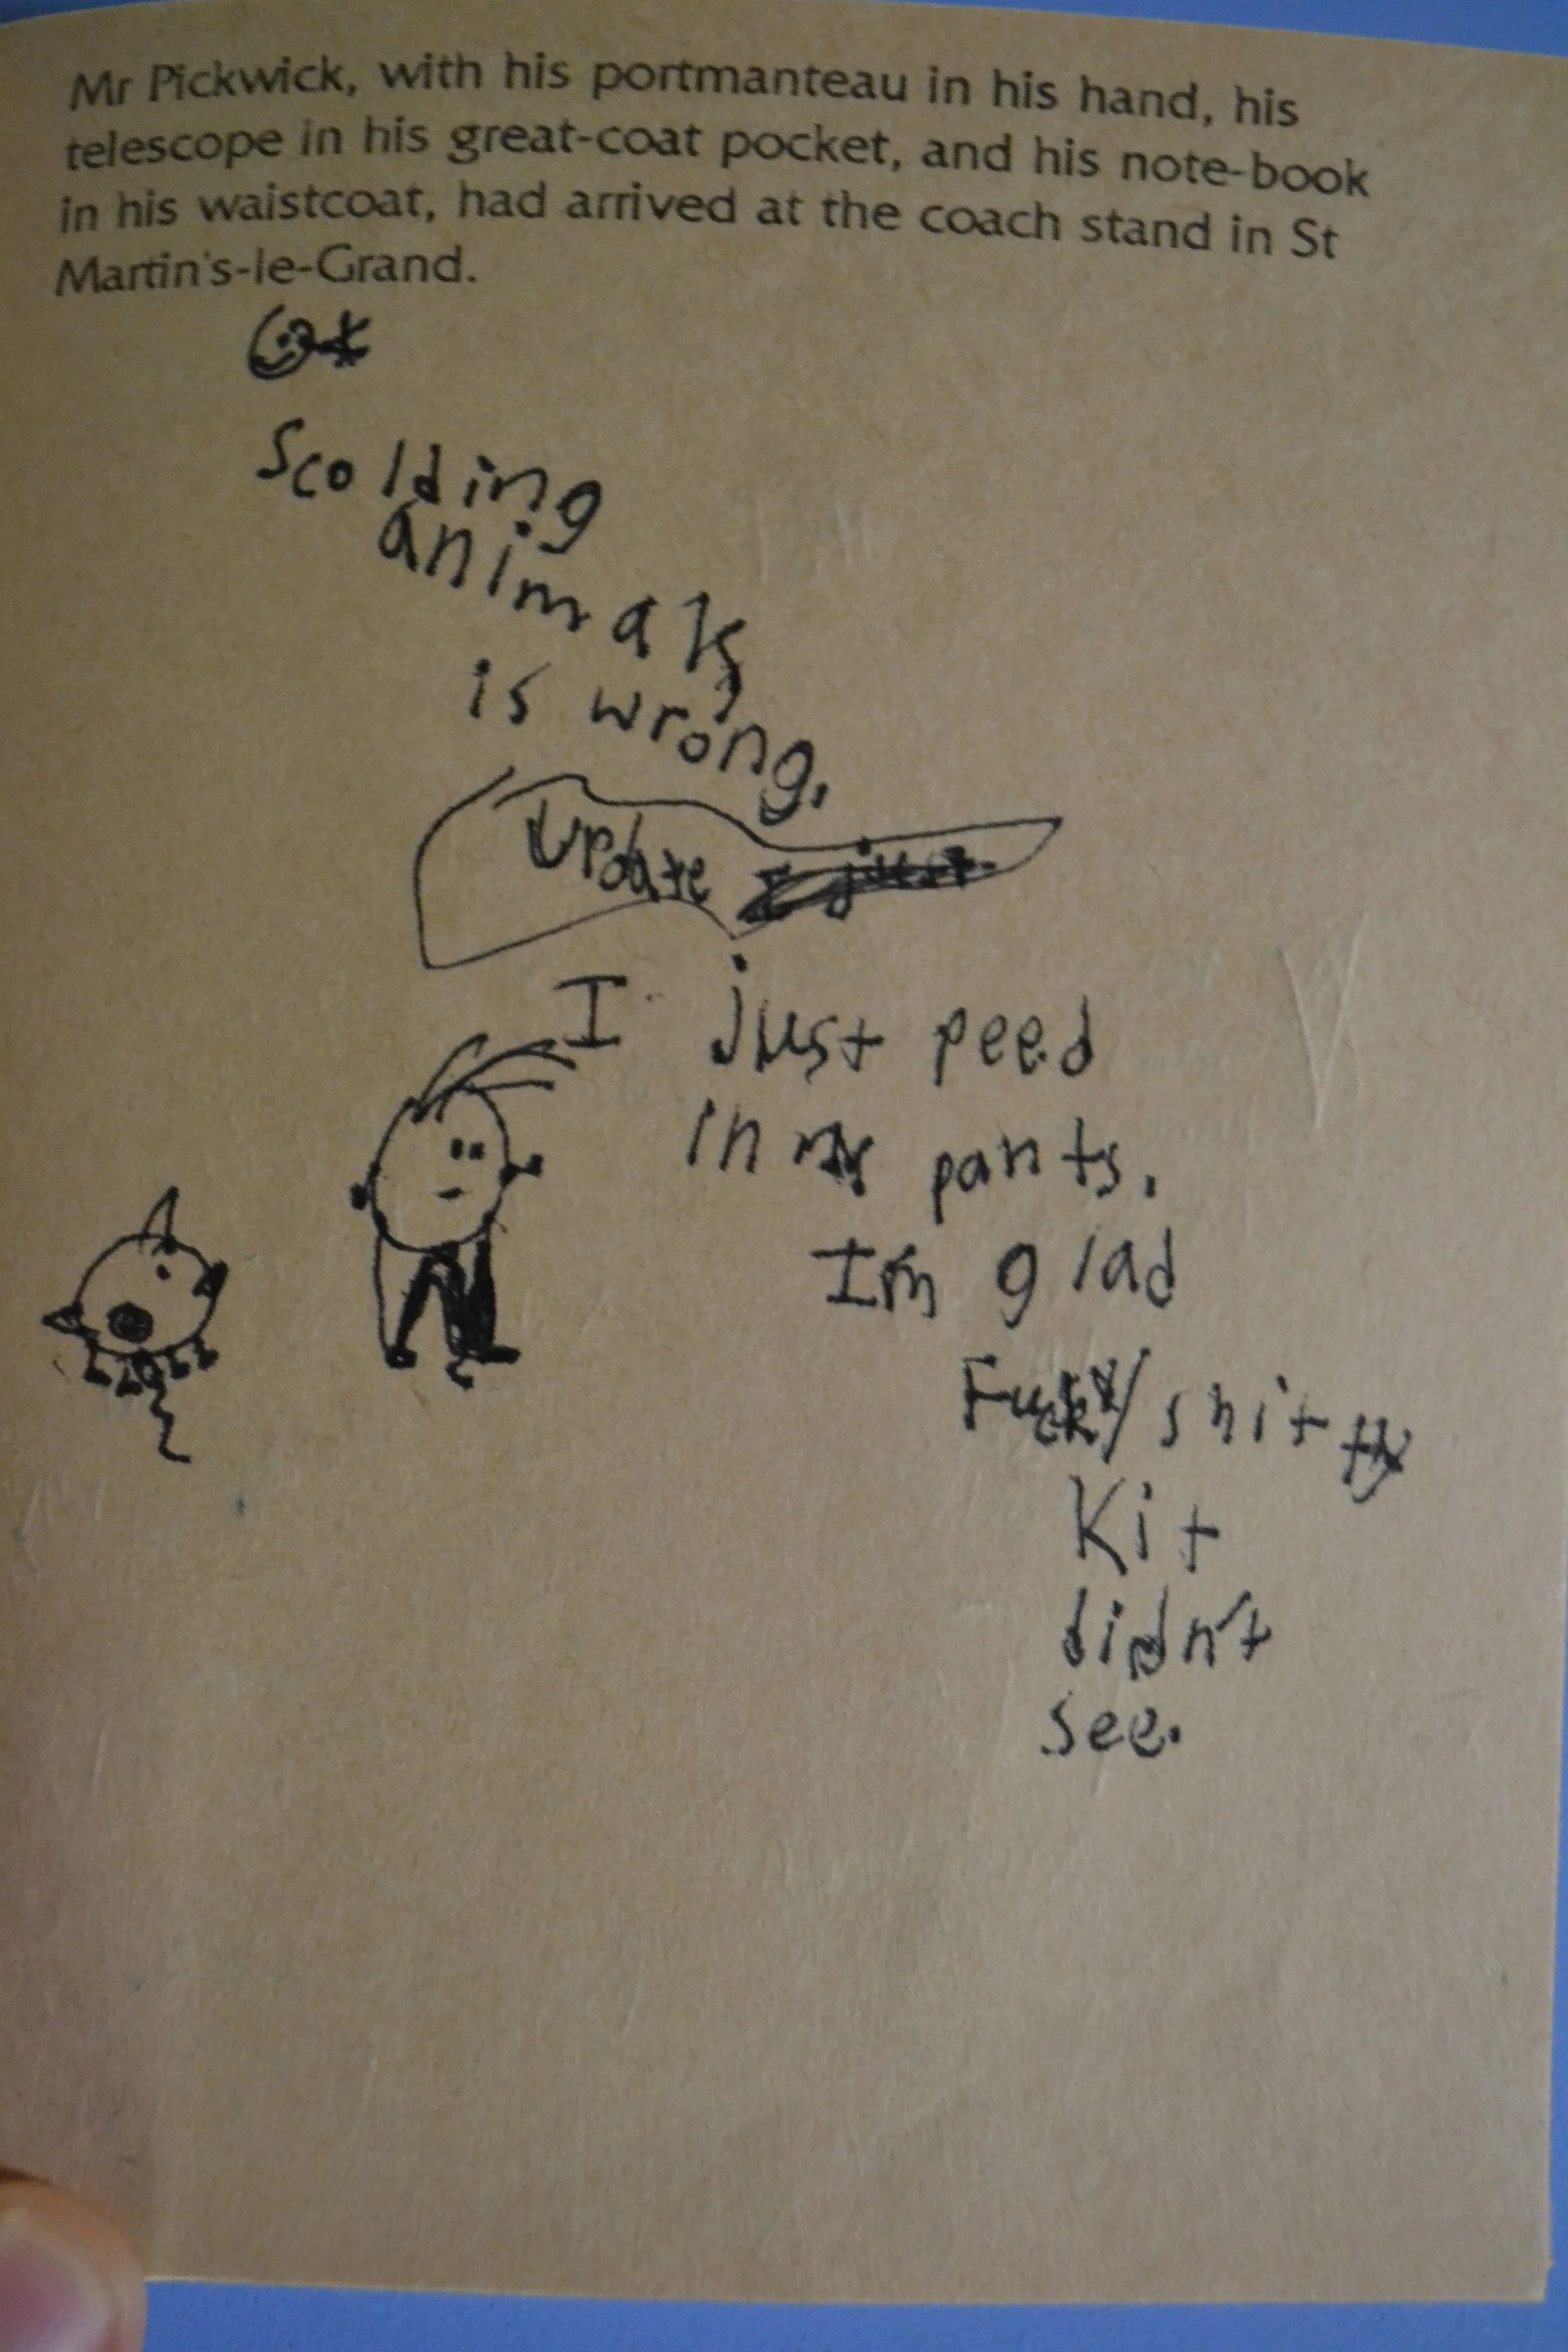 Mr Pickwick, with his portmanteau in his hand, his
telescope in his great-coat pocket, and his note-book
in his waistcoat, had arrived at the coach stand in St
Martin's-le-Grand.
Scolding
animals
is wrong.
Update I just
I just peed
in my pants.
I'm glad
Fuck/shitty
Kit
didn't
see.